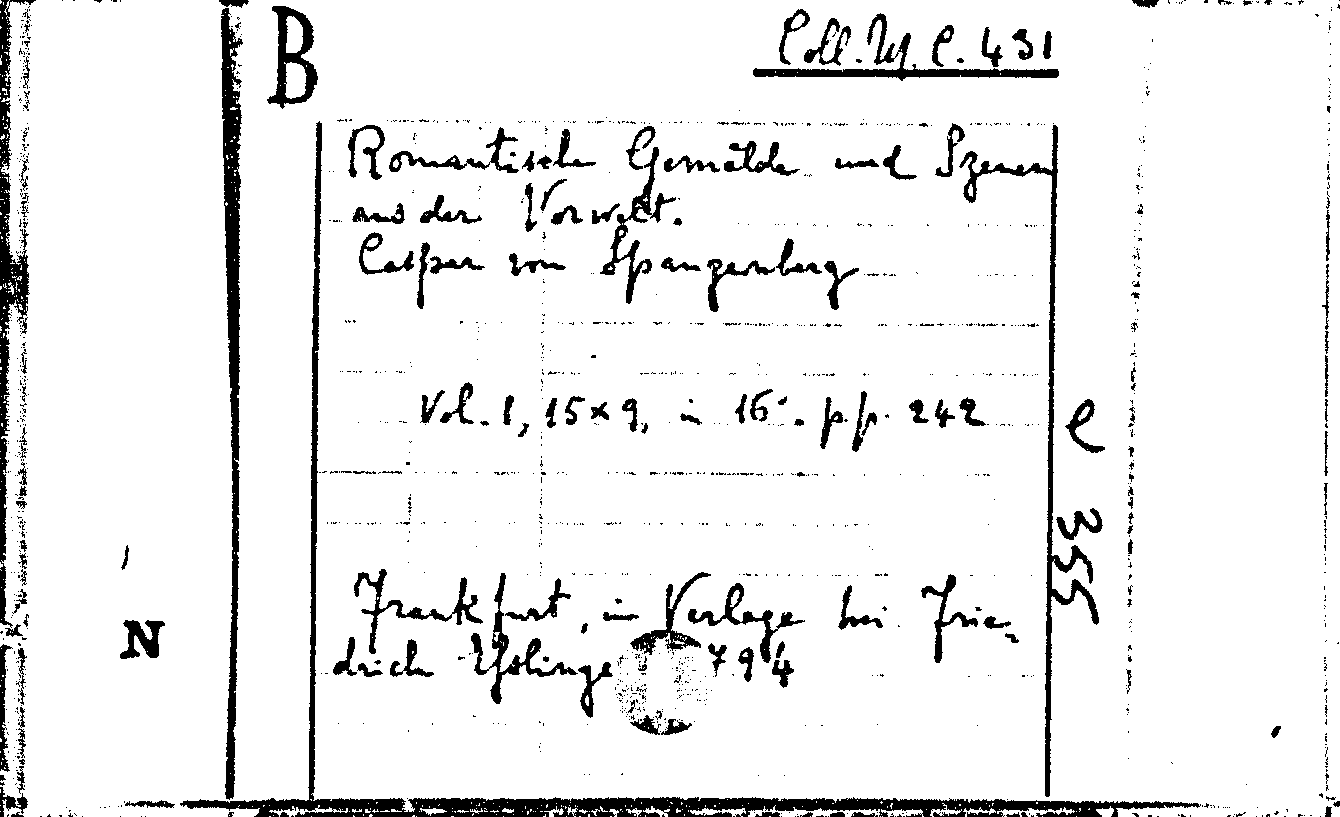 B
Coll. M. C. 431
Romantische Gemälde und Szenen
aus der Vorwelt.
Caspar von Spangenberg
Vol. 1, 15×9, in 16°. pp. 242
e 355
Frankfurt, im Verlage bei Frie-
drich Eßlinge 794
N